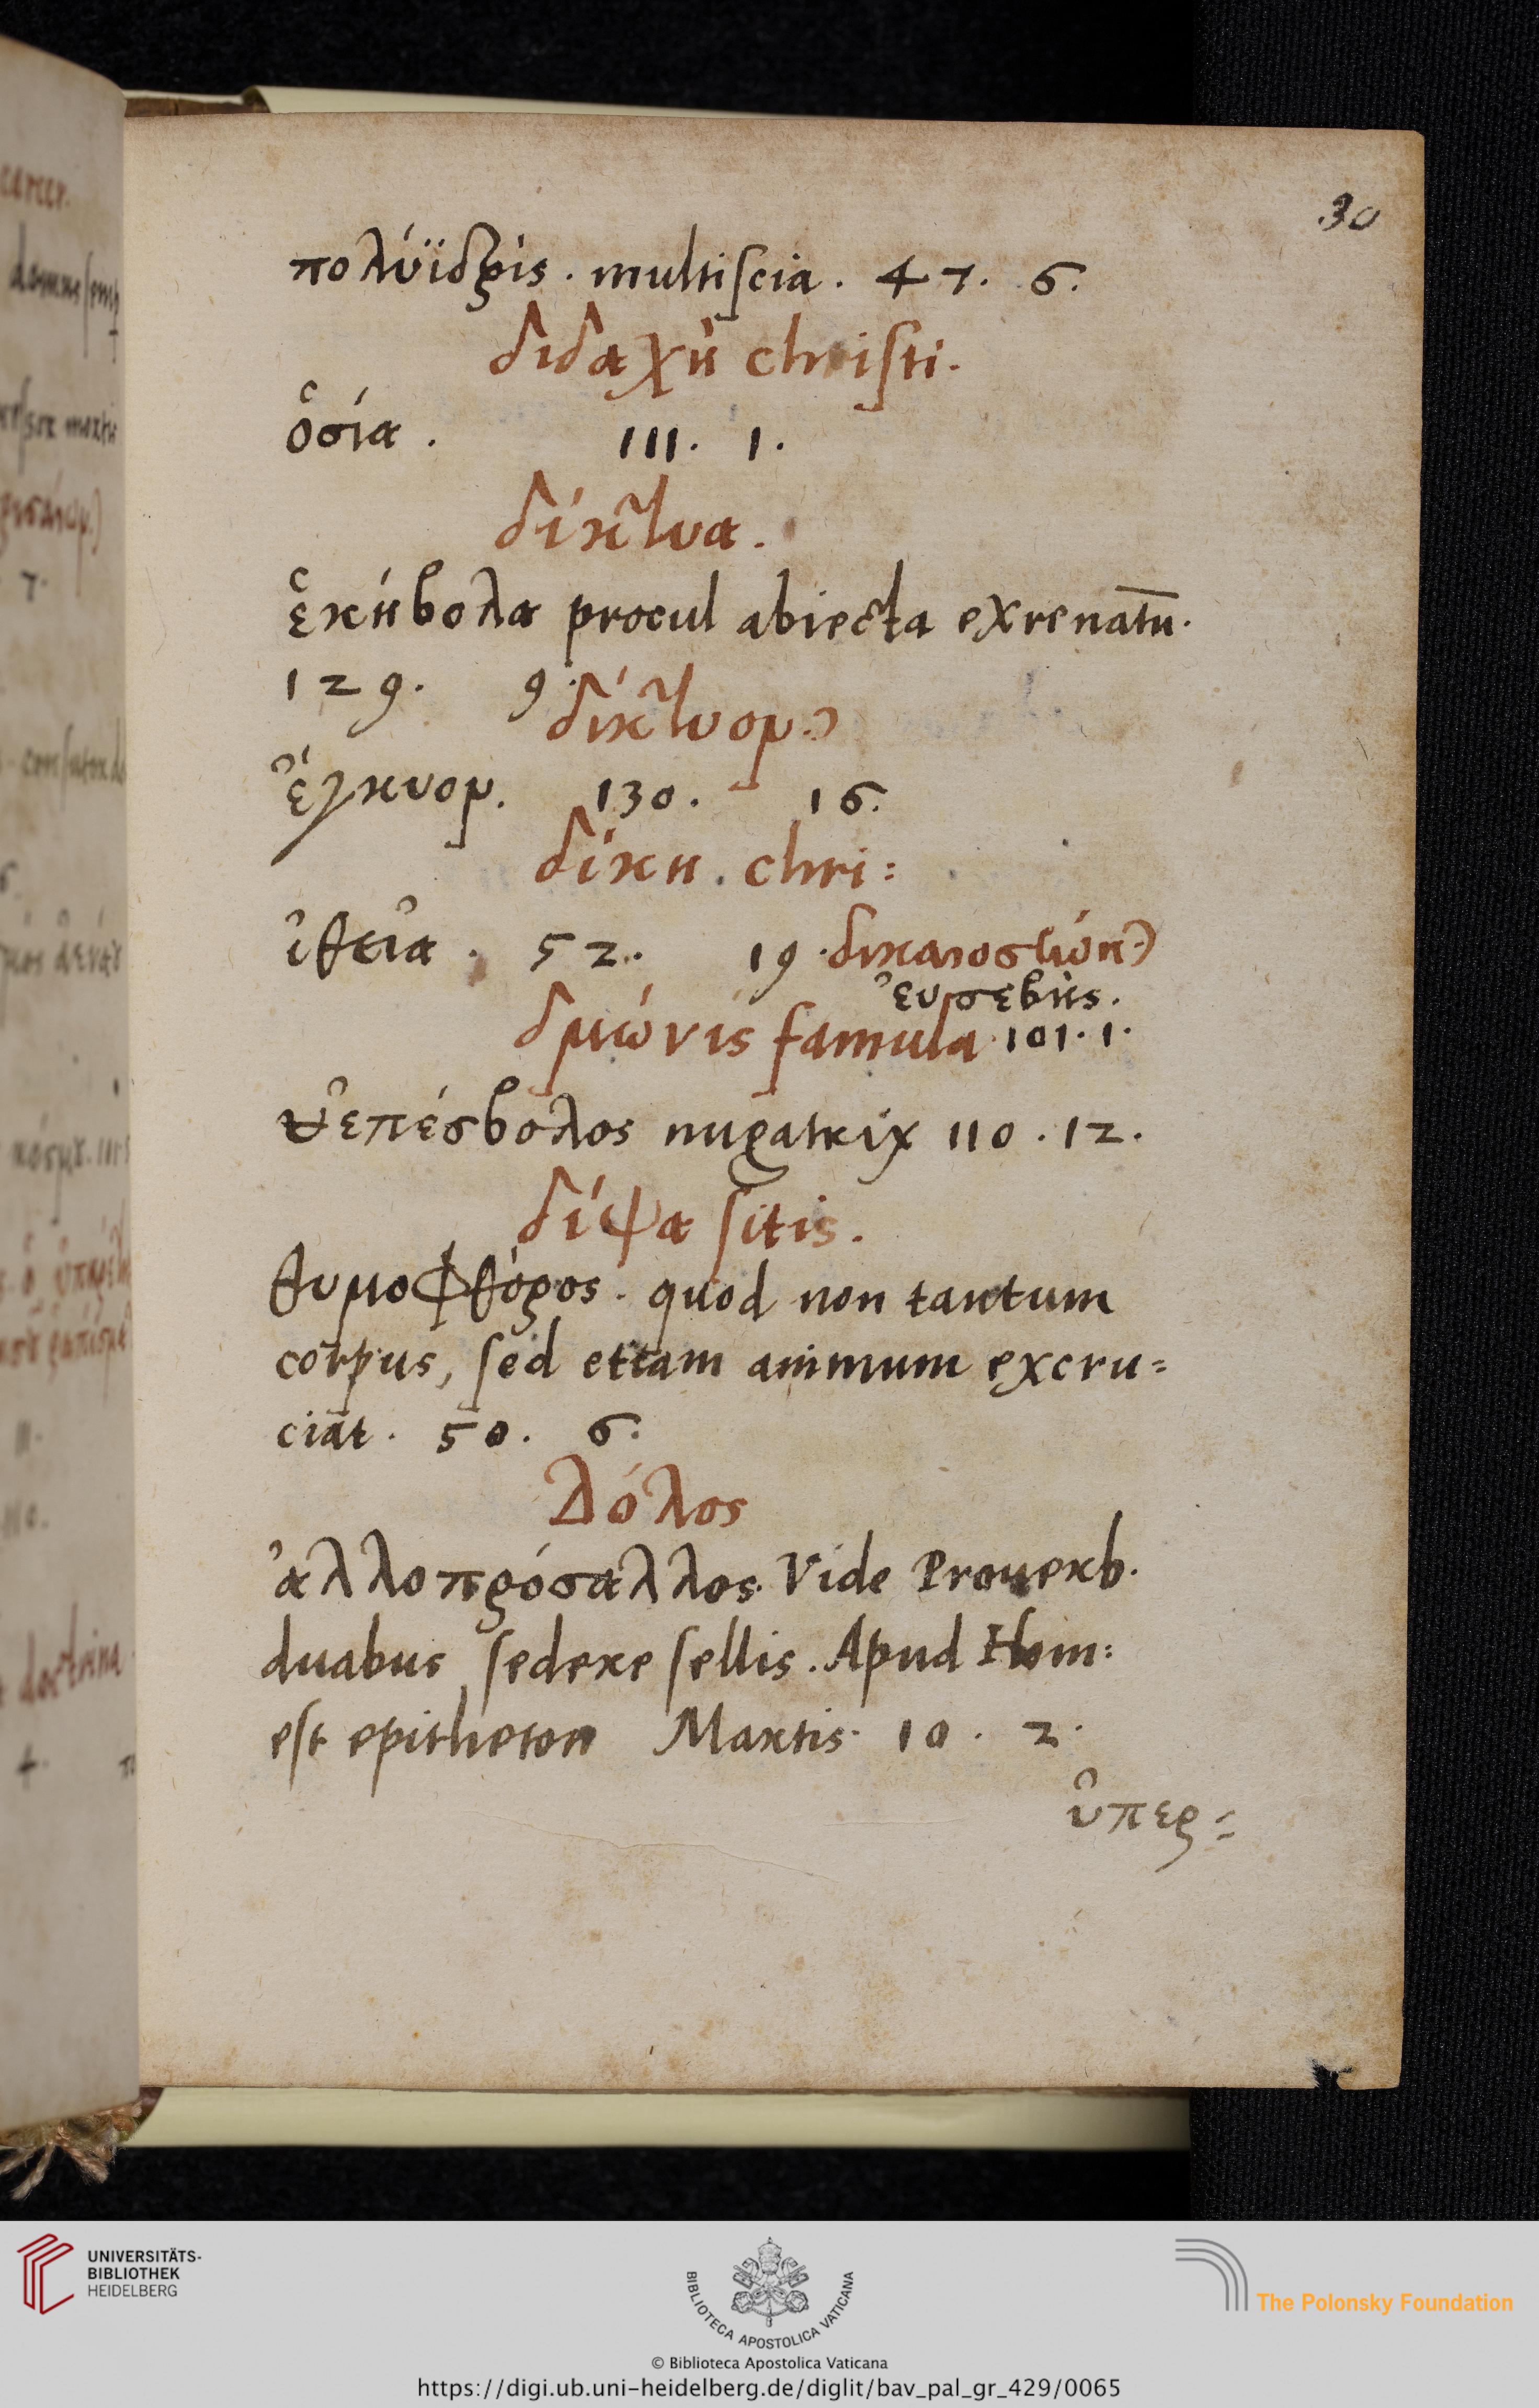 30
πολύϊδρις. multiſcia. 47. 6.
διδαχὴ chriſti.
ὁσία. 111. 1.
δίκτυα.
ἑκήβολα procul abiecta exrenatū.
129. 9.
δίκτυον.)
ἔγκυον. 130. 16.
δίκη. chri:
ἰθεῖα. 52. 19. δικαιοσύνη)
ἐυσεβὴς. 101. 1.
δμώνις famula
ἐπέσβολος nugatrix 110. 12.
δίψα ſitis.
θυμοφθόρος. quod non tantum
corpus, ſed etiam animum excru=
ciat. 50. 6.
Δόλος
ἀλλοπρόσαλλος. Vide Prouerb.
duabus ſedere ſellis. Apud Hom:
eſt epitheton Martis. 10. 2.
ὑπερ=
carcer.
doctrina
UNIVERSITÄTS-
BIBLIOTHEK
HEIDELBERG
BIBLIOTECA APOSTOLICA VATICANA
The Polonsky Foundation
© Biblioteca Apostolica Vaticana
https://digi.ub.uni-heidelberg.de/diglit/bav_pal_gr_429/0065